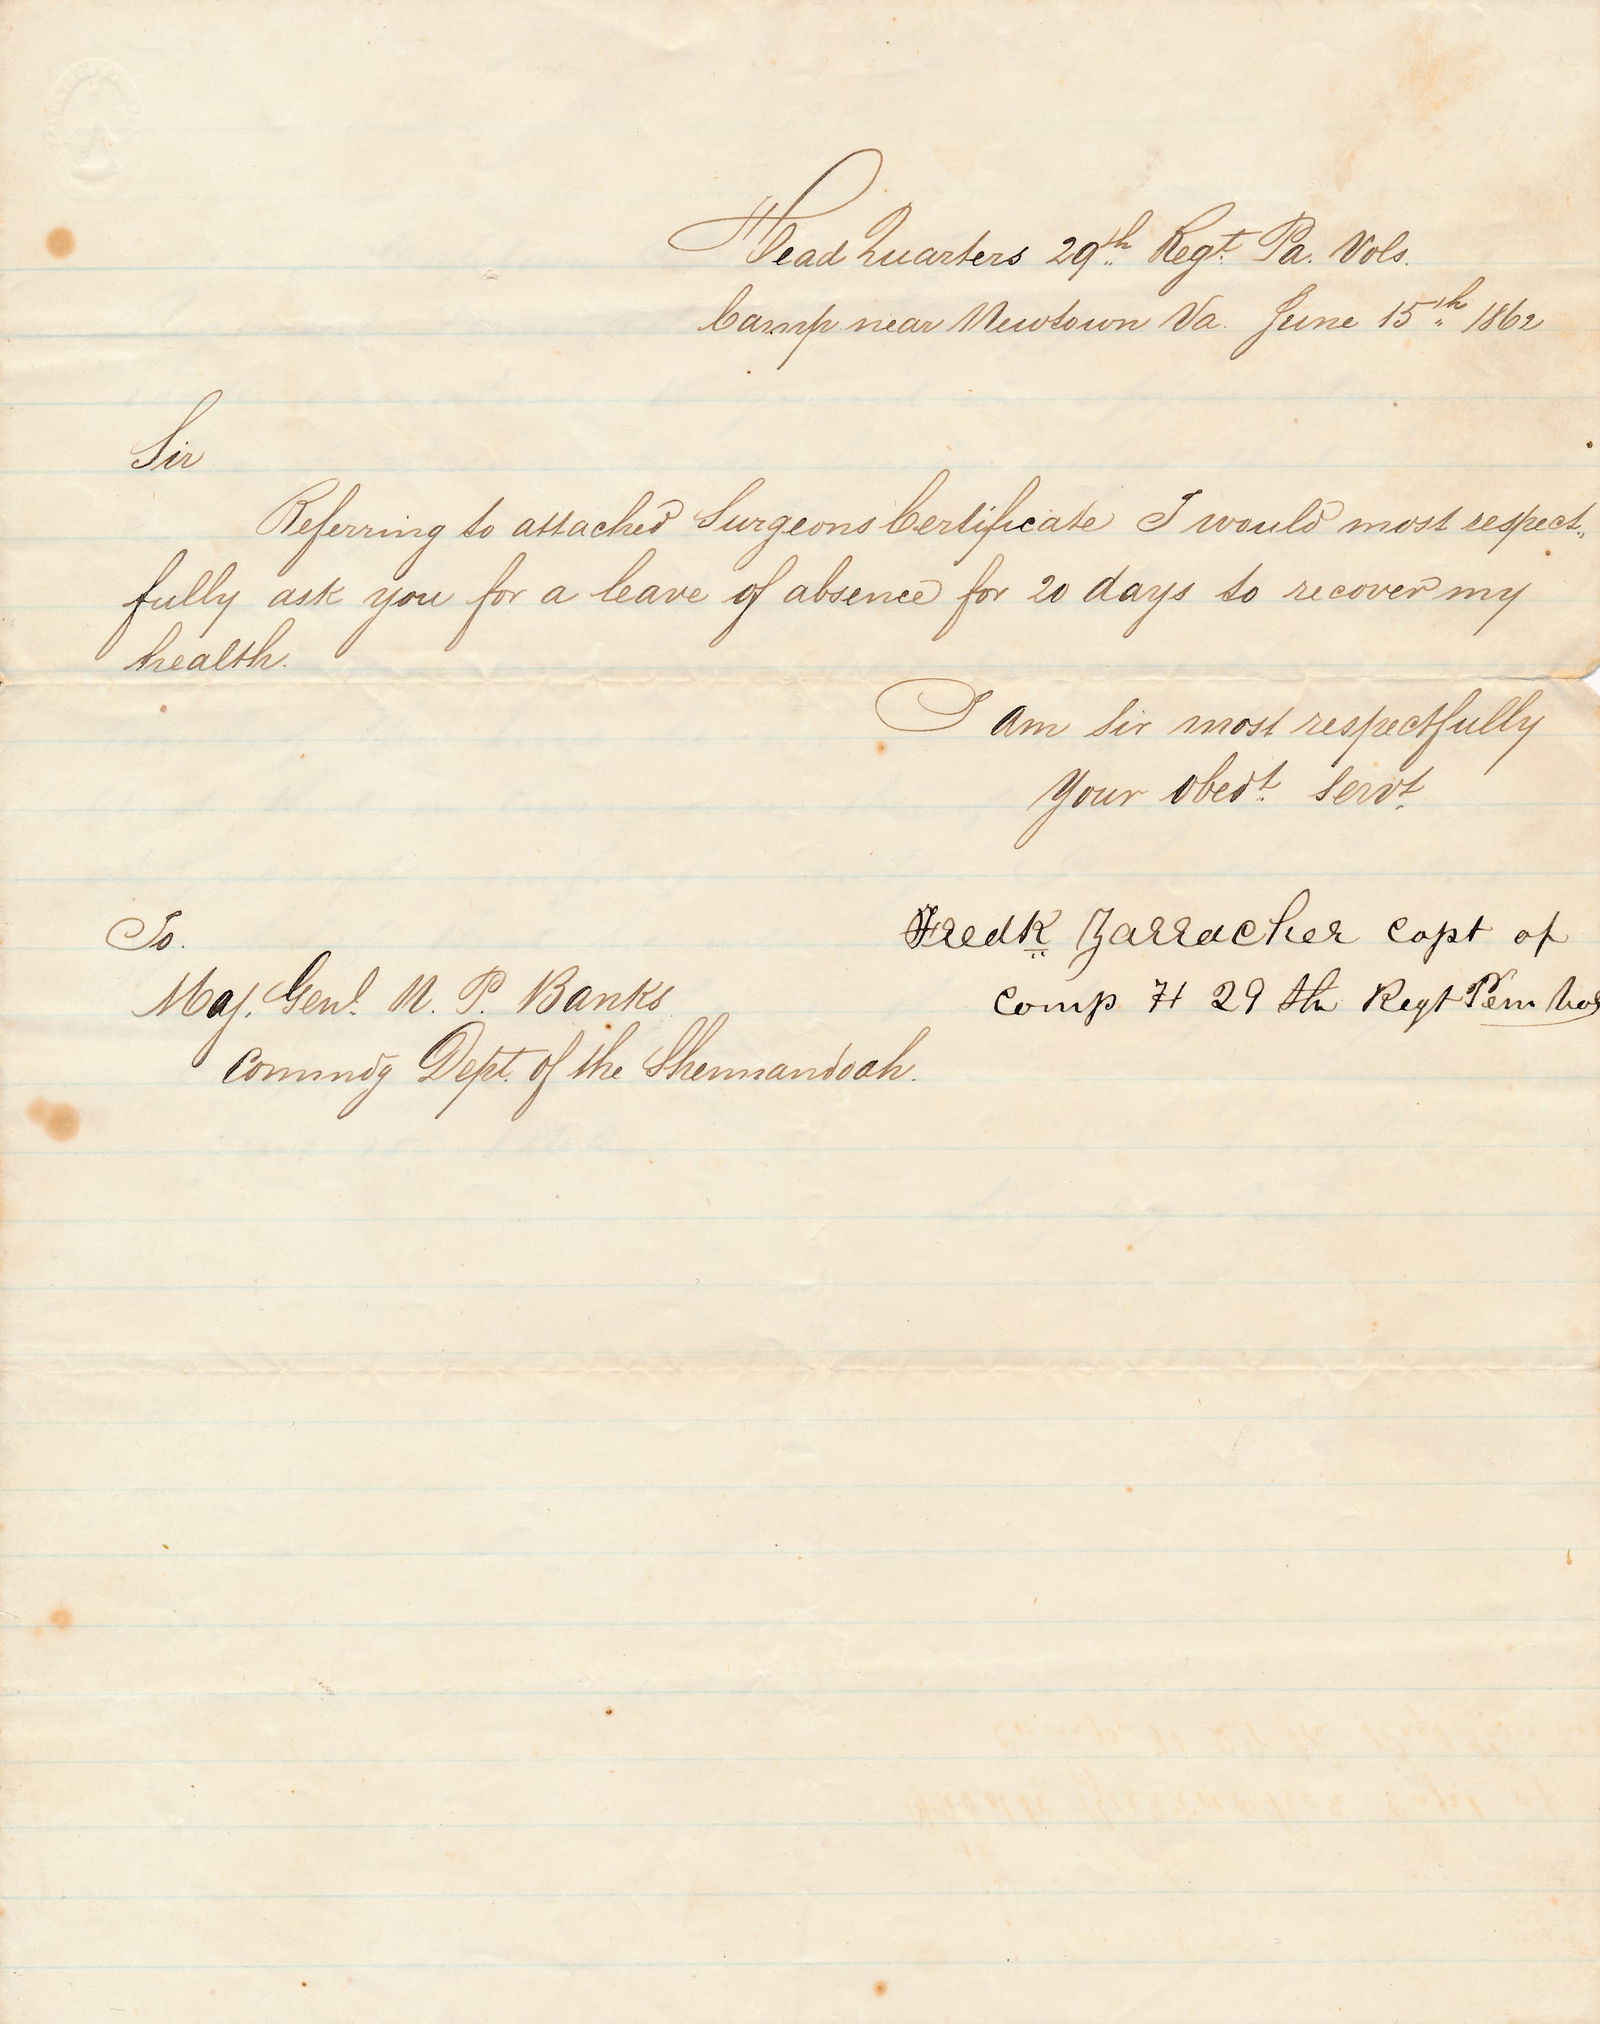 Head Quarters 29th Regt. Pa. Vols.
Camp near Newtown Va. June 15th 1862
Sir
Referring to attached Surgeons Certificate I would most respect-
fully ask you for a leave of absence for 20 days to recover my
health.
I am Sir most respectfully
Your obedt. servt.
To.
Fredk Zarracher Capt of
Maj. Genl. N. P. Banks
Comp H 29 th Regt Penn Vols
Commdg Dept. of the Shennandoah.